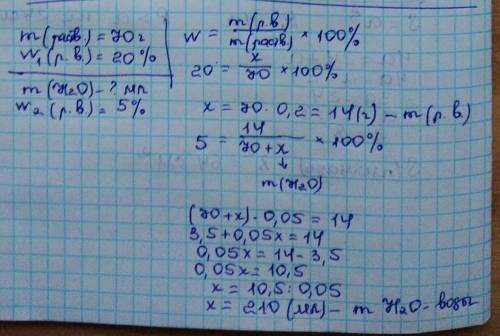 m(раств) = 70 г
W₁(р.в.) = 20%
m(H₂O) - ? мл
W₂(р.в.) = 5%
W = m(р.в.) / m(раств) × 100%
20 = x / 70 × 100%
x = 70 · 0,2 = 14(г) - m(р.в.)
5 = 14 / 70+x × 100%
↓
m(H₂O)
(70+x) · 0,05 = 14
3,5+0,05x = 14
0,05x = 14 - 3,5
0,05x = 10,5
x = 10,5 : 0,05
x = 210 (мл) - m H₂O - воды